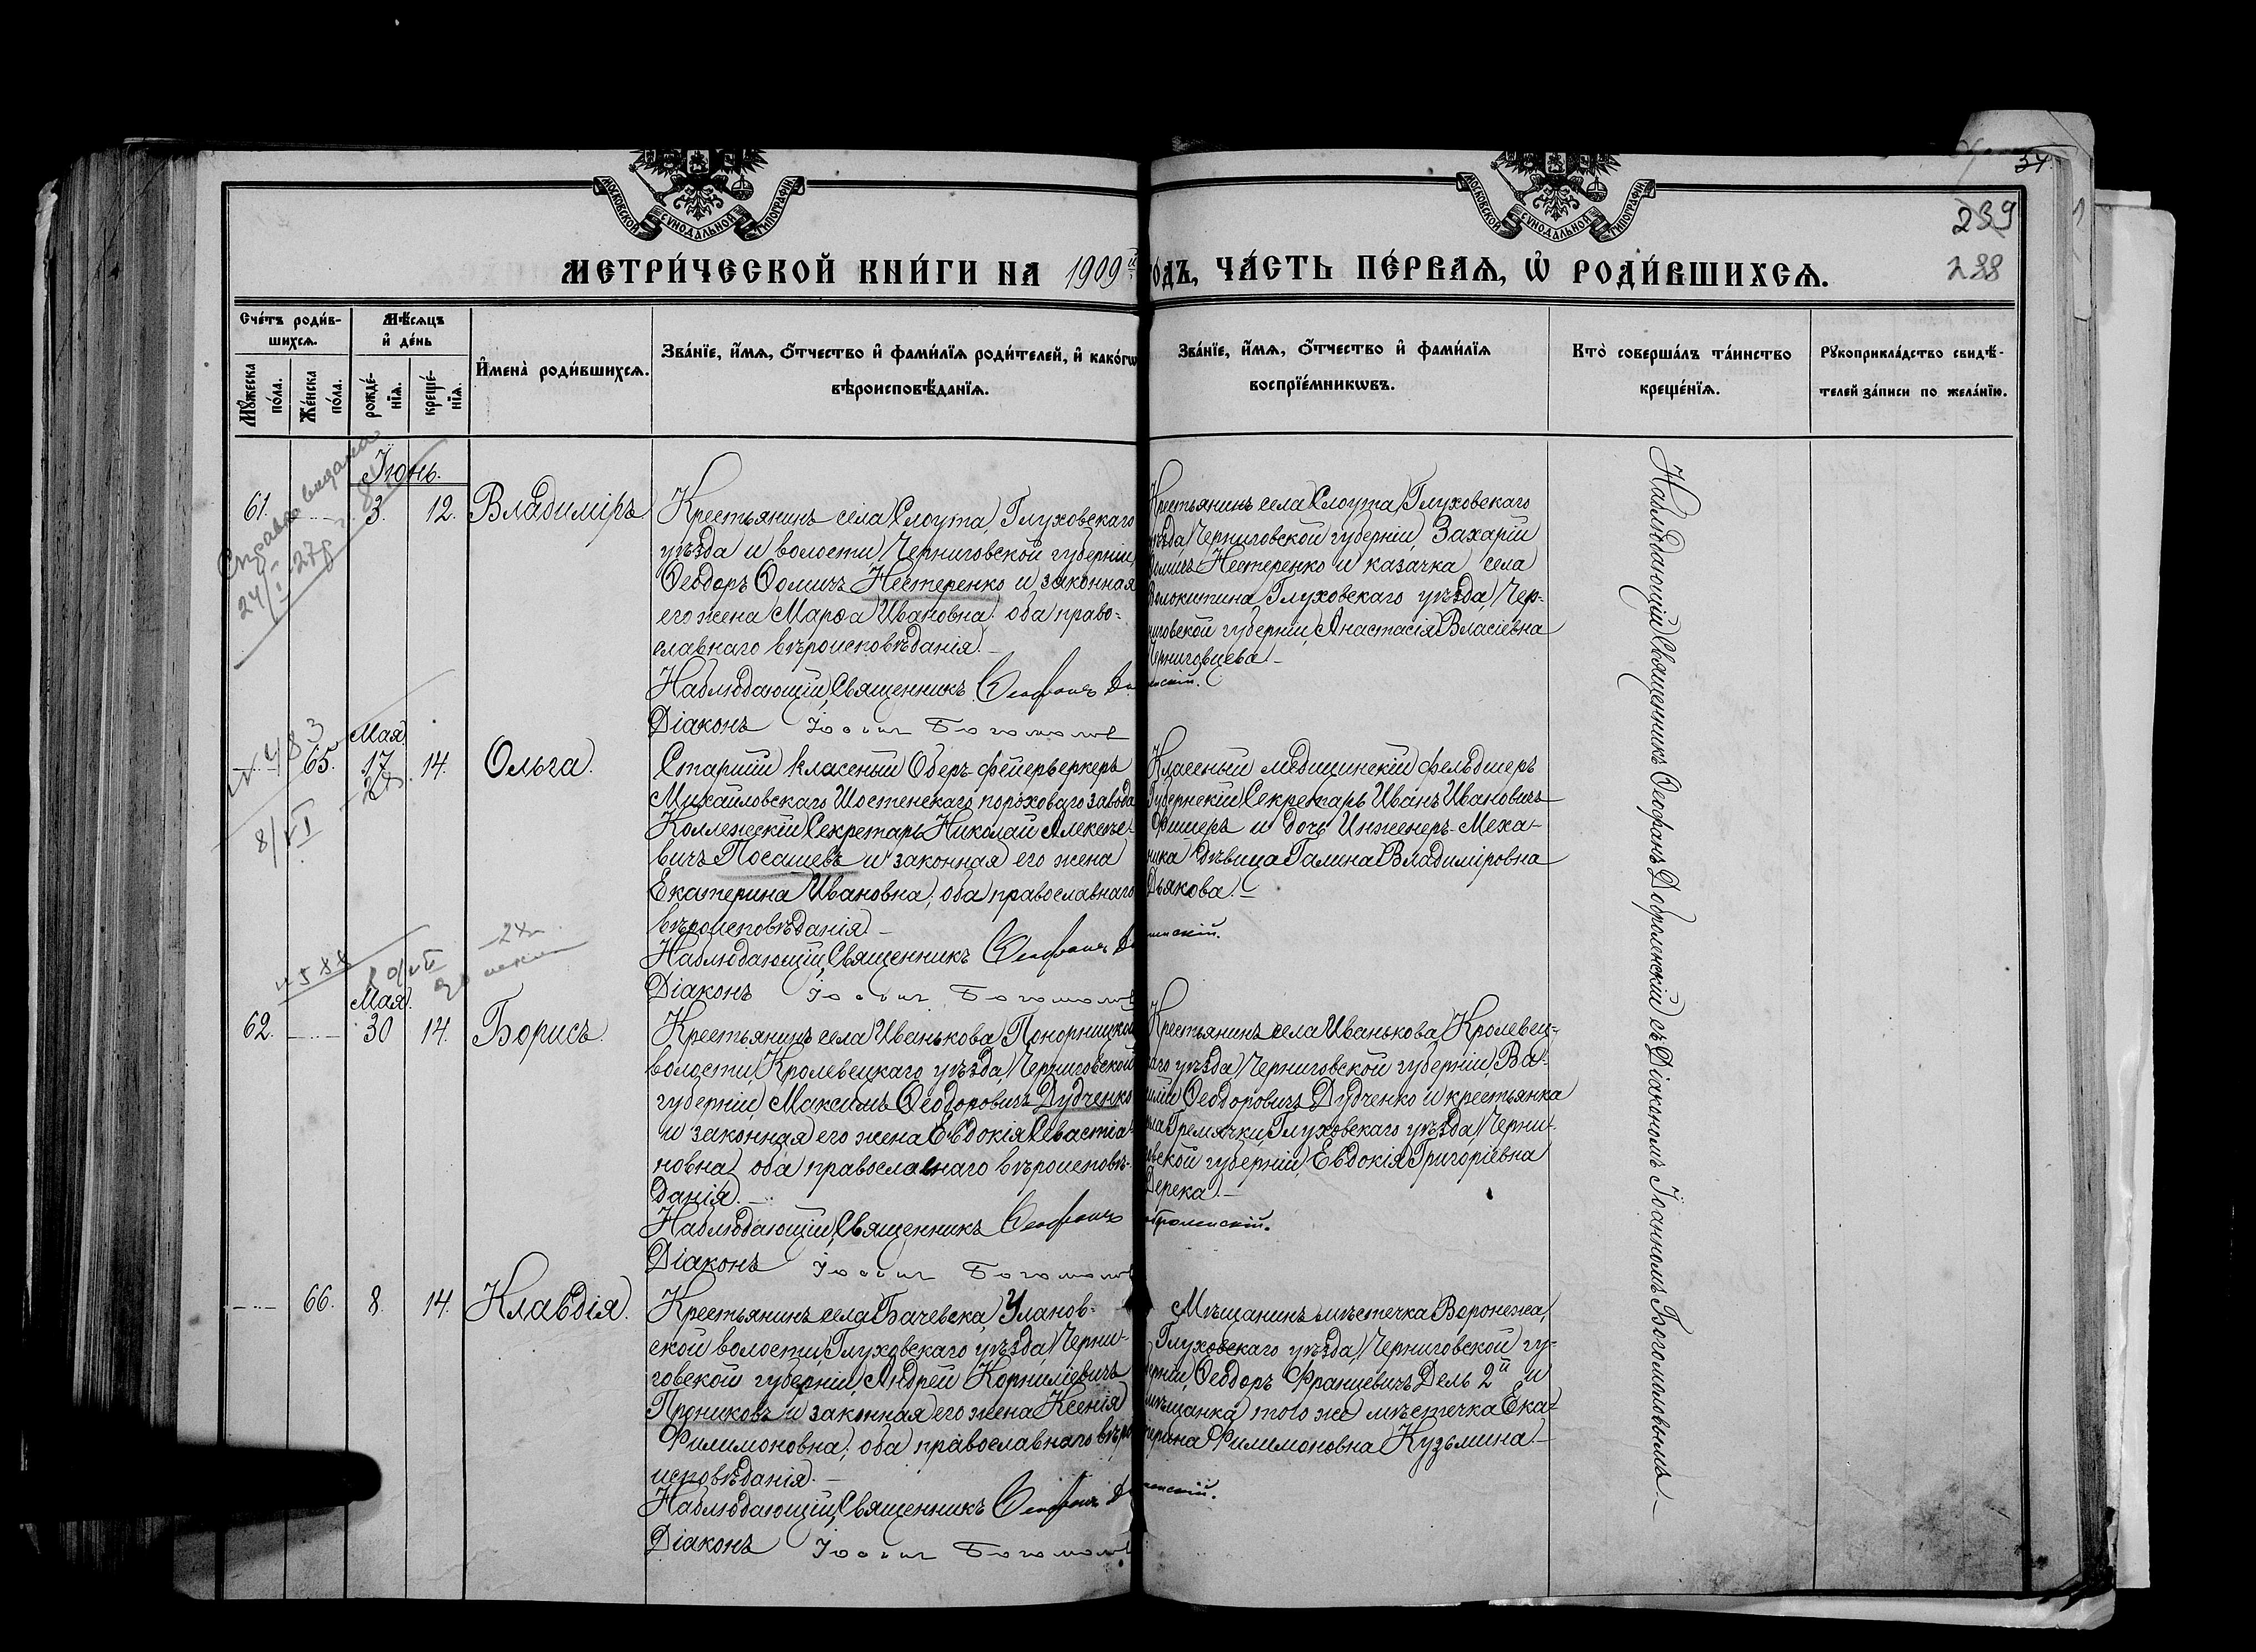 МОСКОВСКОЙ СѴНОДАЛЬНОЙ ТИПОГРАФІИ
МОСКОВСКОЙ СѴНОДАЛЬНОЙ ТИПОГРАФІИ
34.
239
288
МЕТРИ́ЧЕСКОЙ КНИ́ГИ НА 1909й
ОДЪ, ЧА́СТЬ ПЕ́РВАѦ, Ѡ҆ РОДИ́ВШИХСѦ.
Сче́тъ роди́в-
шихсѧ.
Мѣ́сѧцъ
и҆ де́нь
Мꙋ́жеска по́ла.
Же́нска по́ла.
рожде́-
нїѧ.
креще́-
нїѧ.
И҆мена̀ роди́вшихсѧ.
Зва́нїе, и҆́мѧ, ѻ҆́тчество и҆ фами́лїѧ роди́телей, и҆ како́гѡ
вѣроисповѣ́данїѧ.
Зва́нїе, и҆́мѧ, ѻ҆́тчество и҆ фами́лїѧ
воспрїе́мникѡвъ.
Кто̀ соверша́лъ та́инство
креще́нїѧ.
Рꙋкоприкла́дство свидѣ́-
телей за́писи по жела́нїю.
Справка выдана
24/I-27г.
Іюнь.
61.
3.
12.
Владиміръ
Крестьянинъ села Слоута, Глуховскаго
уѣзда и волости, Черниговской губерніи,
Ѳеодоръ Ѳомичъ Нестеренко и законная
его жена Марѳа Ивановна; оба право-
славнаго вѣроисповѣданія.
Наблюдающій, Священникъ Ѳеофанъ До
Діаконъ Іоаннъ Богомолов
Крестьянинъ села Слоута, Глуховскаго
уѣзда, Черниговской губерніи, Захарій
Ѳомичъ Нестеренко и казачка села
Глуховскаго уѣзда, Чер-
ниговской губерніи, Анастасія Власіевна
Черниговцева
енскій.
№ 483
8/VI
Мая.
65.
17
14.
Ольга.
Старшій класный Оберъ-фейерверкеръ
Михайловскаго Шостенскаго пороховаго завода
Коллежскій Секретарь Николай Алексѣе-
вичъ Посашевъ и законная его жена
Екатерина Ивановна; оба православнаго
вѣроисповѣданія
Наблюдающій, Священникъ Ѳеофанъ До
Діаконъ Іоаннъ Богомолов
Класный медицинскій фельдшеръ
Губернскій Секретарь Иванъ Ивановичъ
Фишеръ и дочь Инженеръ-Меха-
ника дѣвица Галина Владиміровна
Дьякова.
енскій.
№ 588
Мая.
62.
30
14.
Борисъ.
Крестьянинъ села Иванькова, Понорницкой
волости, Кролевецкаго уѣзда, Черниговской
губерніи, Максимъ Ѳеодоровичъ Дудченко
и законная его жена Евдокія Севастіа-
новна, оба православнаго вѣроисповѣ-
данія.
Наблюдающій, Священникъ Ѳеофанъ
Діаконъ Іоаннъ Богомолов
Крестьянинъ села Иванькова, Кролевец-
каго уѣзда, Черниговской губерніи, Ва-
силій Ѳеодоровичъ Дудченко и крестьянка
села Гремячки, Глуховскаго уѣзда, Черни-
говской губерніи, Евдокія Григоріевна
Дерека.
оброленскій.
66.
8.
14.
Клавдія.
Крестьянинъ села Бачевска, Уланов-
ской волости, Глуховскаго уѣзда, Черни-
говской губерніи, Андрей Корниліевичъ
Прониковъ и законная его жена Ксенія
Филимоновна; оба православнаго вѣро-
исповѣданія.
Наблюдающій, Священникъ Ѳеофанъ До
Діаконъ Іоаннъ Богомолов
Мѣщанинъ мѣстечка Воронежа,
Глуховскаго уѣзда, Черниговской гу-
берніи, Ѳеодоръ Францевичъ Дель 2й и
мѣщанка того же мѣстечка Ека-
терина Филимоновна Кузьмина
енскій.
Наблюдающій Священникъ Ѳеофанъ Доброленскій съ Діакономъ Іоанномъ Богомоловымъ.